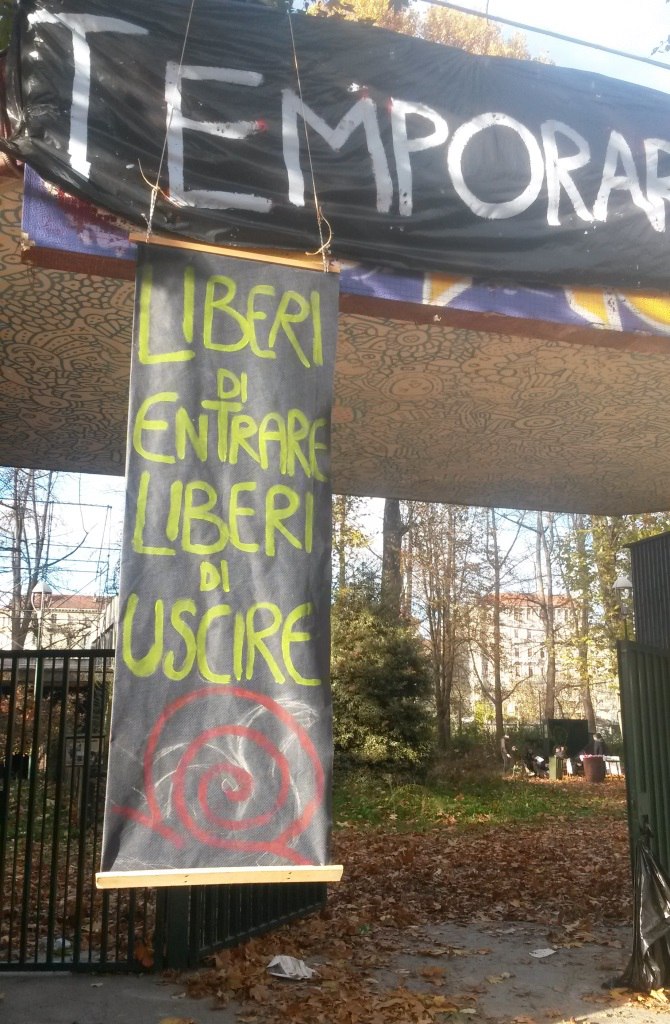 TEMPORAR
LIBERI
DI
ENTRARE
LIBERI
DI
USCIRE